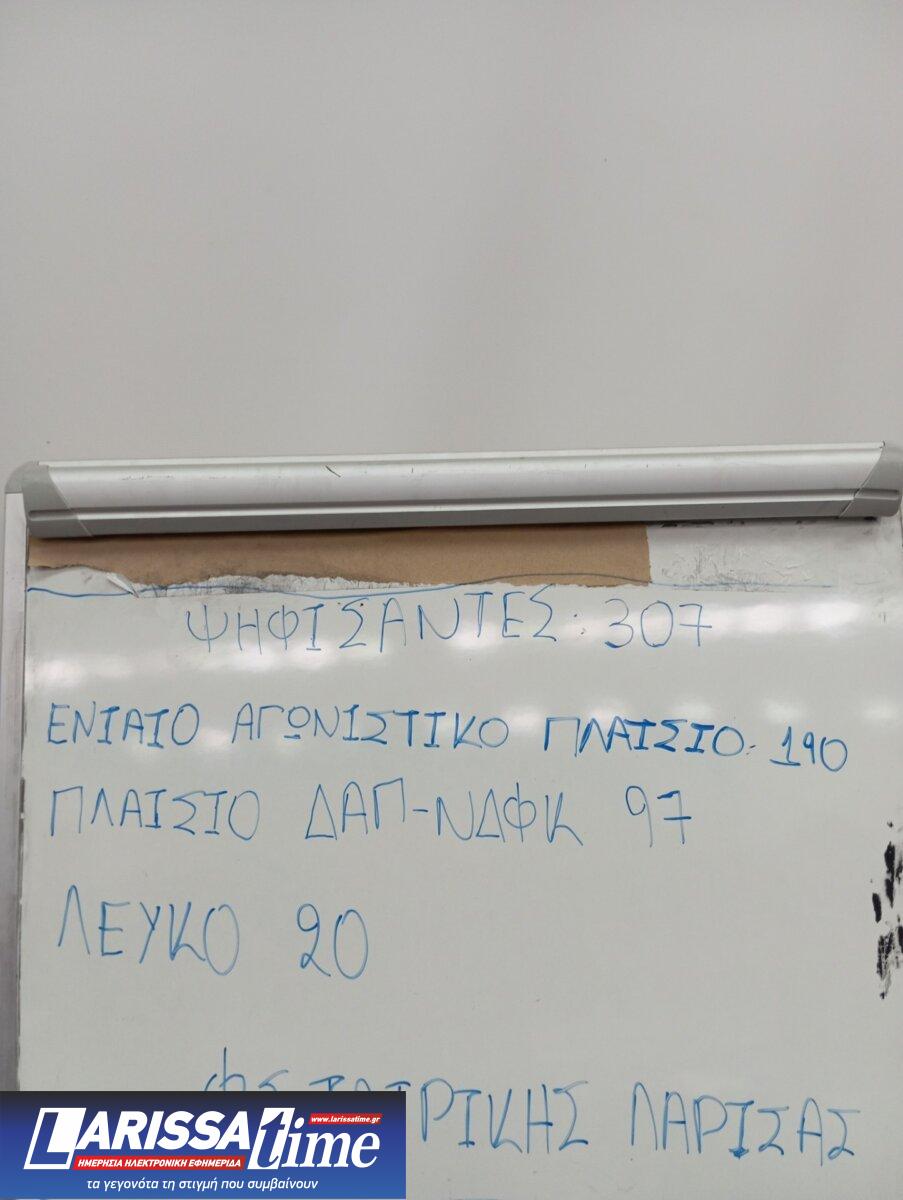 ΨΗΦΙΣΑΝΤΕΣ: 307
ΕΝΙΑΙΟ ΑΓΩΝΙΣΤΙΚΟ ΠΛΑΙΣΙΟ: 190
ΠΛΑΙΣΙΟ ΔΑΠ-ΝΔΦΚ 97
ΛΕΥΚΟ 20
ΛΑΡΙΣΑΣ
www.larissatime.gr
LARISSA time
ΗΜΕΡΗΣΙΑ ΗΛΕΚΤΡΟΝΙΚΗ ΕΦΗΜΕΡΙΔΑ
τα γεγονότα τη στιγμή που συμβαίνουν